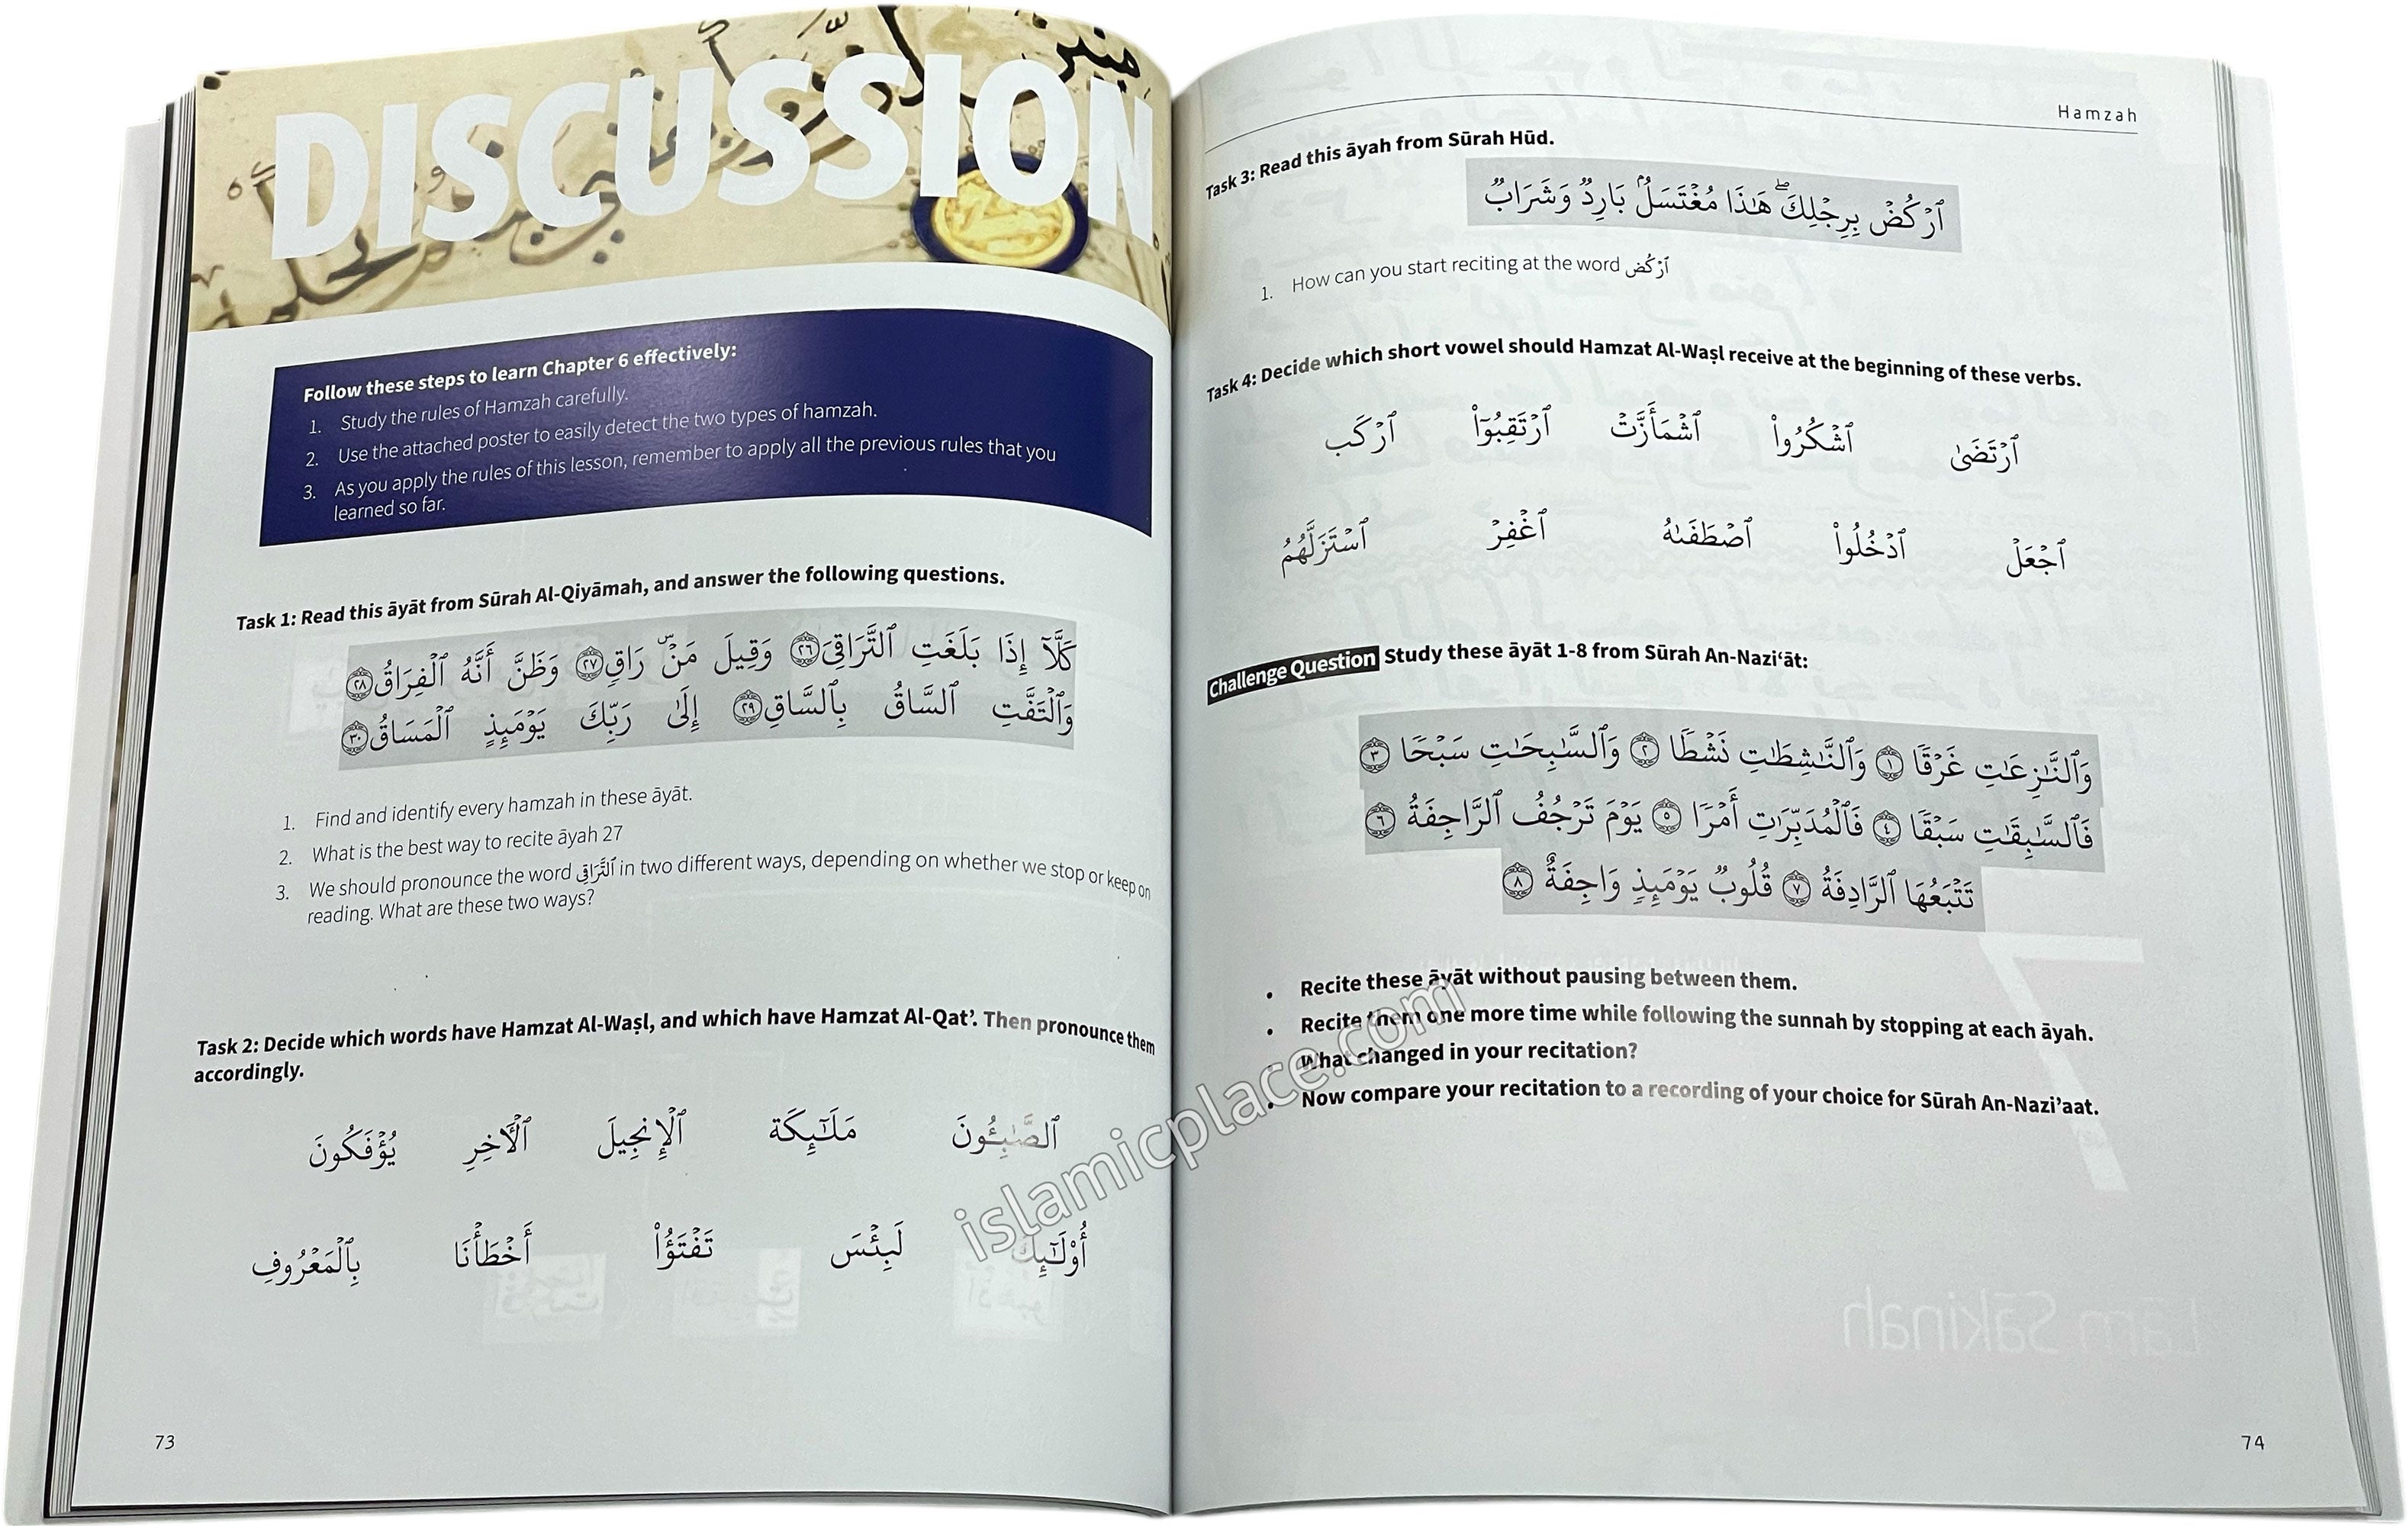 DISCUSSION
Follow these steps to learn Chapter 6 effectively:
1. Study the rules of Hamzah carefully.
2. Use the attached poster to easily detect the two types of hamzah.
3. As you apply the rules of this lesson, remember to apply all the previous rules that you
learned so far.
Task 1: Read this āyāt from Sūrah Al-Qiyāmah, and answer the following questions.
كَلَّآ إِذَا بَلَغَتِ ٱلتَّرَاقِيَ ٢٦ وَقِيلَ مَنْۜ رَاقٖ ٢٧ وَظَنَّ أَنَّهُ ٱلْفِرَاقُ ٢٨
وَٱلْتَفَّتِ ٱلسَّاقُ بِٱلسَّاقِ ٢٩ إِلَىٰ رَبِّكَ يَوْمَئِذٍ ٱلْمَسَاقُ ٣٠
1. Find and identify every hamzah in these āyāt.
2. What is the best way to recite āyah 27
3. We should pronounce the word ٱلتَّرَاقِي in two different ways, depending on whether we stop or keep on
reading. What are these two ways?
Task 2: Decide which words have Hamzat Al-Waṣl, and which have Hamzat Al-Qat’. Then pronounce them
accordingly.
ٱلصَّٰبِـُٔونَ مَلَـٰٓئِكَة ٱلْإِنجِيلَ ٱلْـَٔاخِرِ يُؤْفَكُونَ
أُوْلَـٰٓئِكَ لَبِئْسَ تَفْتَؤُاْ أَخْطَأْنَا بِٱلْمَعْرُوفِ
73
Hamzah
Task 3: Read this āyah from Sūrah Hūd.
ٱرْكُضْ بِرِجْلِكَۖ هَـٰذَا مُغْتَسَلٌۢ بَارِدٞ وَشَرَابٞ
1. How can you start reciting at the word ٱرْكُض
Task 4: Decide which short vowel should Hamzat Al-Waṣl receive at the beginning of these verbs.
ٱرْتَضَىٰ ٱشْكُرُواْ ٱشْمَأَزَّتْ ٱرْتَقِبُوٓاْ ٱرْكَب
ٱجْعَلْ ٱدْخُلُواْ ٱصْطَفَىٰهُ ٱغْفِرْ ٱسْتَزَلَّهُمُ
Challenge Question Study these āyāt 1-8 from Sūrah An-Nazi‘āt:
وَٱلنَّـٰزِعَـٰتِ غَرْقٗا ١ وَٱلنَّـٰشِطَـٰتِ نَشْطٗا ٢ وَٱلسَّـٰبِحَـٰتِ سَبْحٗا ٣
فَٱلسَّـٰبِقَـٰتِ سَبْقٗا ٤ فَٱلْمُدَبِّرَٰتِ أَمْرٗا ٥ يَوْمَ تَرْجُفُ ٱلرَّاجِفَةُ ٦
تَتْبَعُهَا ٱلرَّادِفَةُ ٧ قُلُوبٞ يَوْمَئِذٖ وَاجِفَةٌ ٨
• Recite these āyāt without pausing between them.
• Recite them one more time while following the sunnah by stopping at each āyah.
• What changed in your recitation?
• Now compare your recitation to a recording of your choice for Sūrah An-Nazi’aat.
74
islamicplace.com